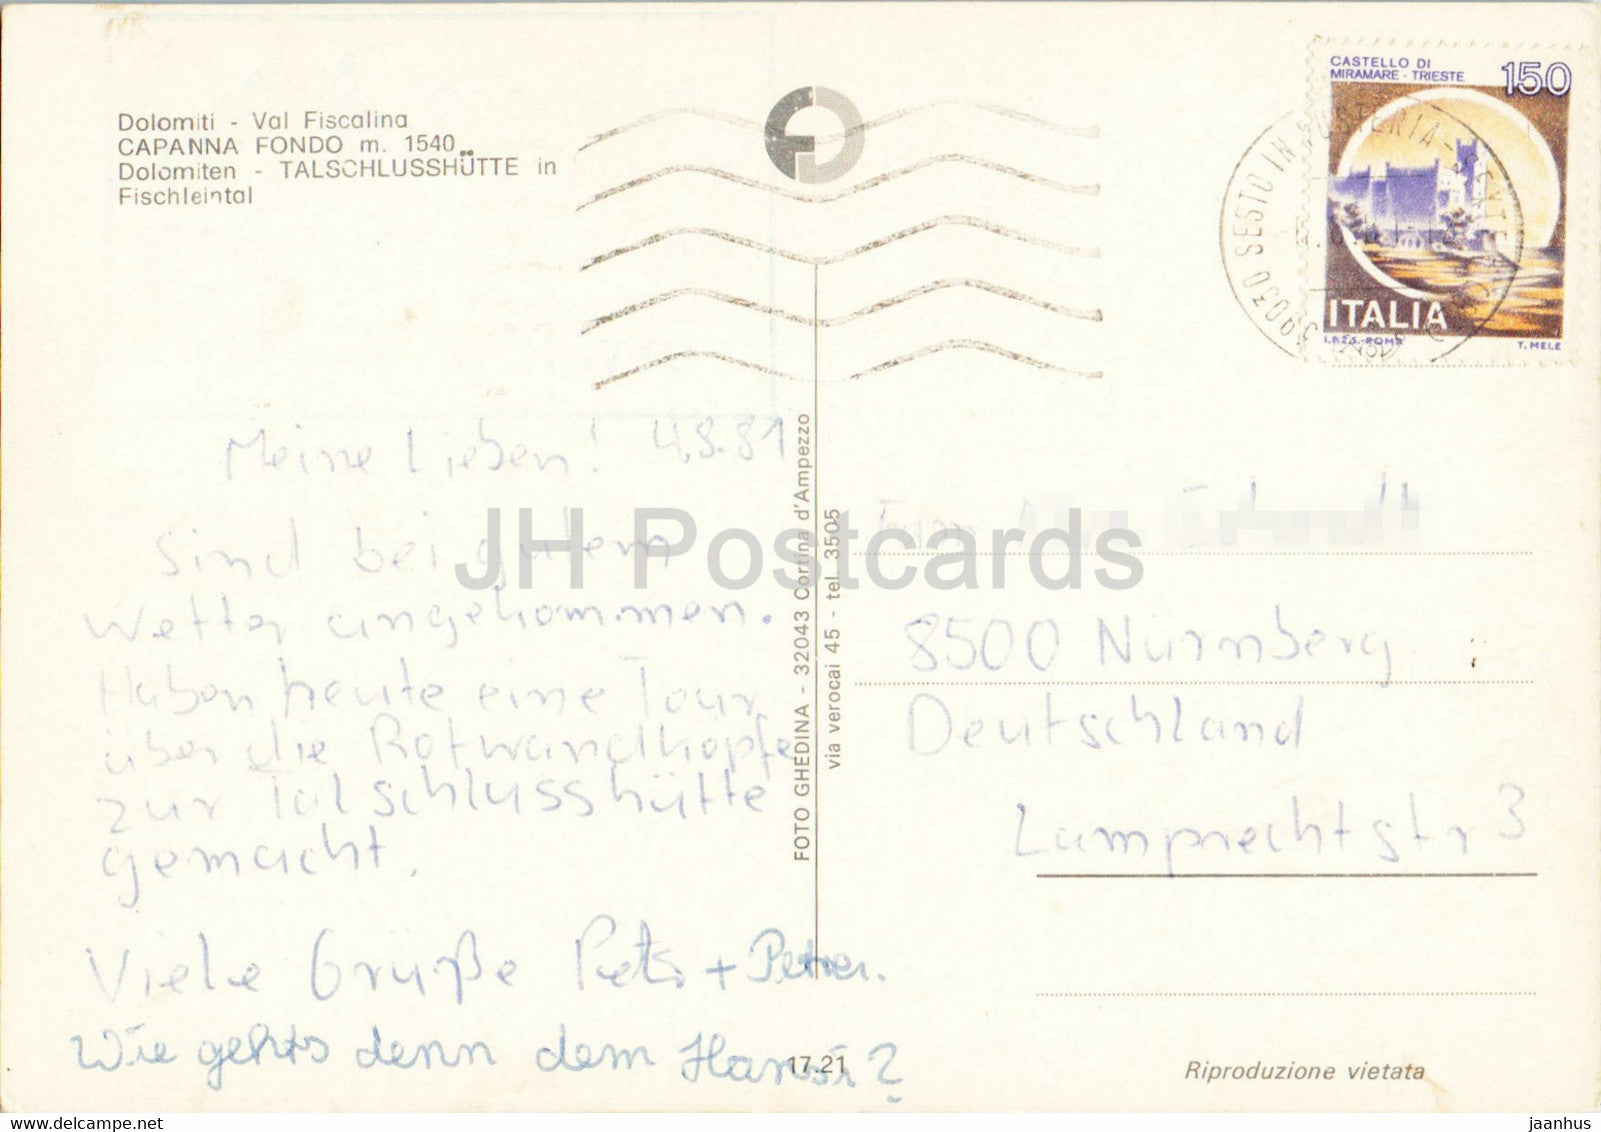 Dolomiti - Val Fiscalina
CAPANNA FONDO m. 1540
Dolomiten - TALSCHLUSSHÜTTE in
Fischleintal
CASTELLO DI
MIRAMARE - TRIESTE
150
ITALIA
I.P.Z.S.-ROMA
T. MELE
39030 SESTO IN PUSTERIA -
Meine Lieben! 4.8.81
Sind bei gutem
Wetter angekommen.
Haben heute eine Tour
über die Rotwandköpfe
zur Talschlusshütte
gemacht.
Viele Grüße Peter + Petra.
Wie gehts denn dem Hansi?
FOTO GHEDINA - 32043 Cortina d'Ampezzo
via verocai 45 - tel. 3505
8500 Nürnberg
Deutschland
Lamprechtstr 3
17.21
Riproduzione vietata
JH Postcards
jaanhus ©
delcampe.net